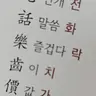 번개 전
話 말씀 화
樂 즐겁다 락
齒 이 치
價 값 가